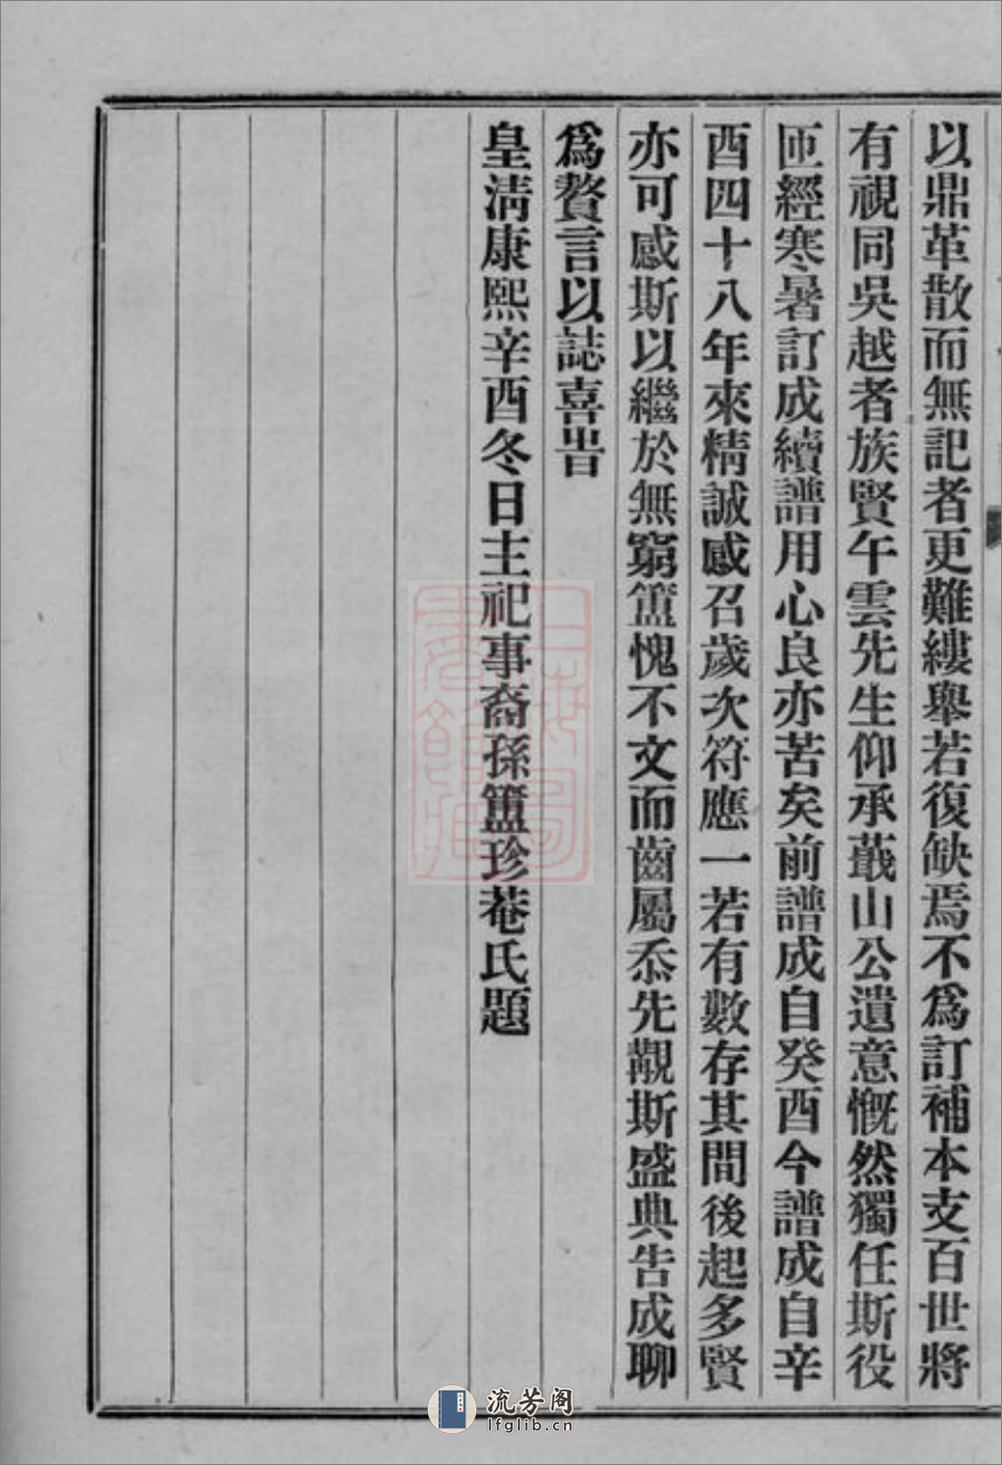 以鼎革散而無記者更難縷舉若復缺焉不爲訂補本支百世將
有視同吳越者族賢午雲先生仰承蕺山公遺意慨然獨任斯役
匝經寒暑訂成續譜用心良亦苦矣前譜成自癸酉今譜成自辛
酉四十八年來精誠感召歲次符應一若有數存其間後起多賢
亦可感斯以繼於無窮簠愧不文而齒屬忝先覯斯盛典告成聊
爲贅言以誌喜旹
皇淸康熙辛酉冬日主祀事裔孫簠珍菴氏題
流芳阁
lfglib.cn